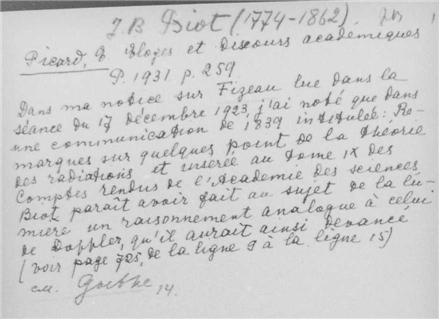 J B Biot (1774-1862).
Picard, E Eloges et Discours académiques
P. 1931 p. 259
Dans ma notice sur Fizeau lue dans la
séance du 17 décembre 1923, j'ai noté que dans
une communication de 1839 intitulée: Re-
marques sur quelques point de la théorie
des radiations et insérée au tome IX des
Comptes rendus de l'Académie des sciences
Biot paraît avoir fait au sujet de la lu-
mière un raisonnement analogue à celui
de Doppler, qu'il aurait ainsi devancé
(voir page 725, de la ligne 9 à la ligne 15)
14.